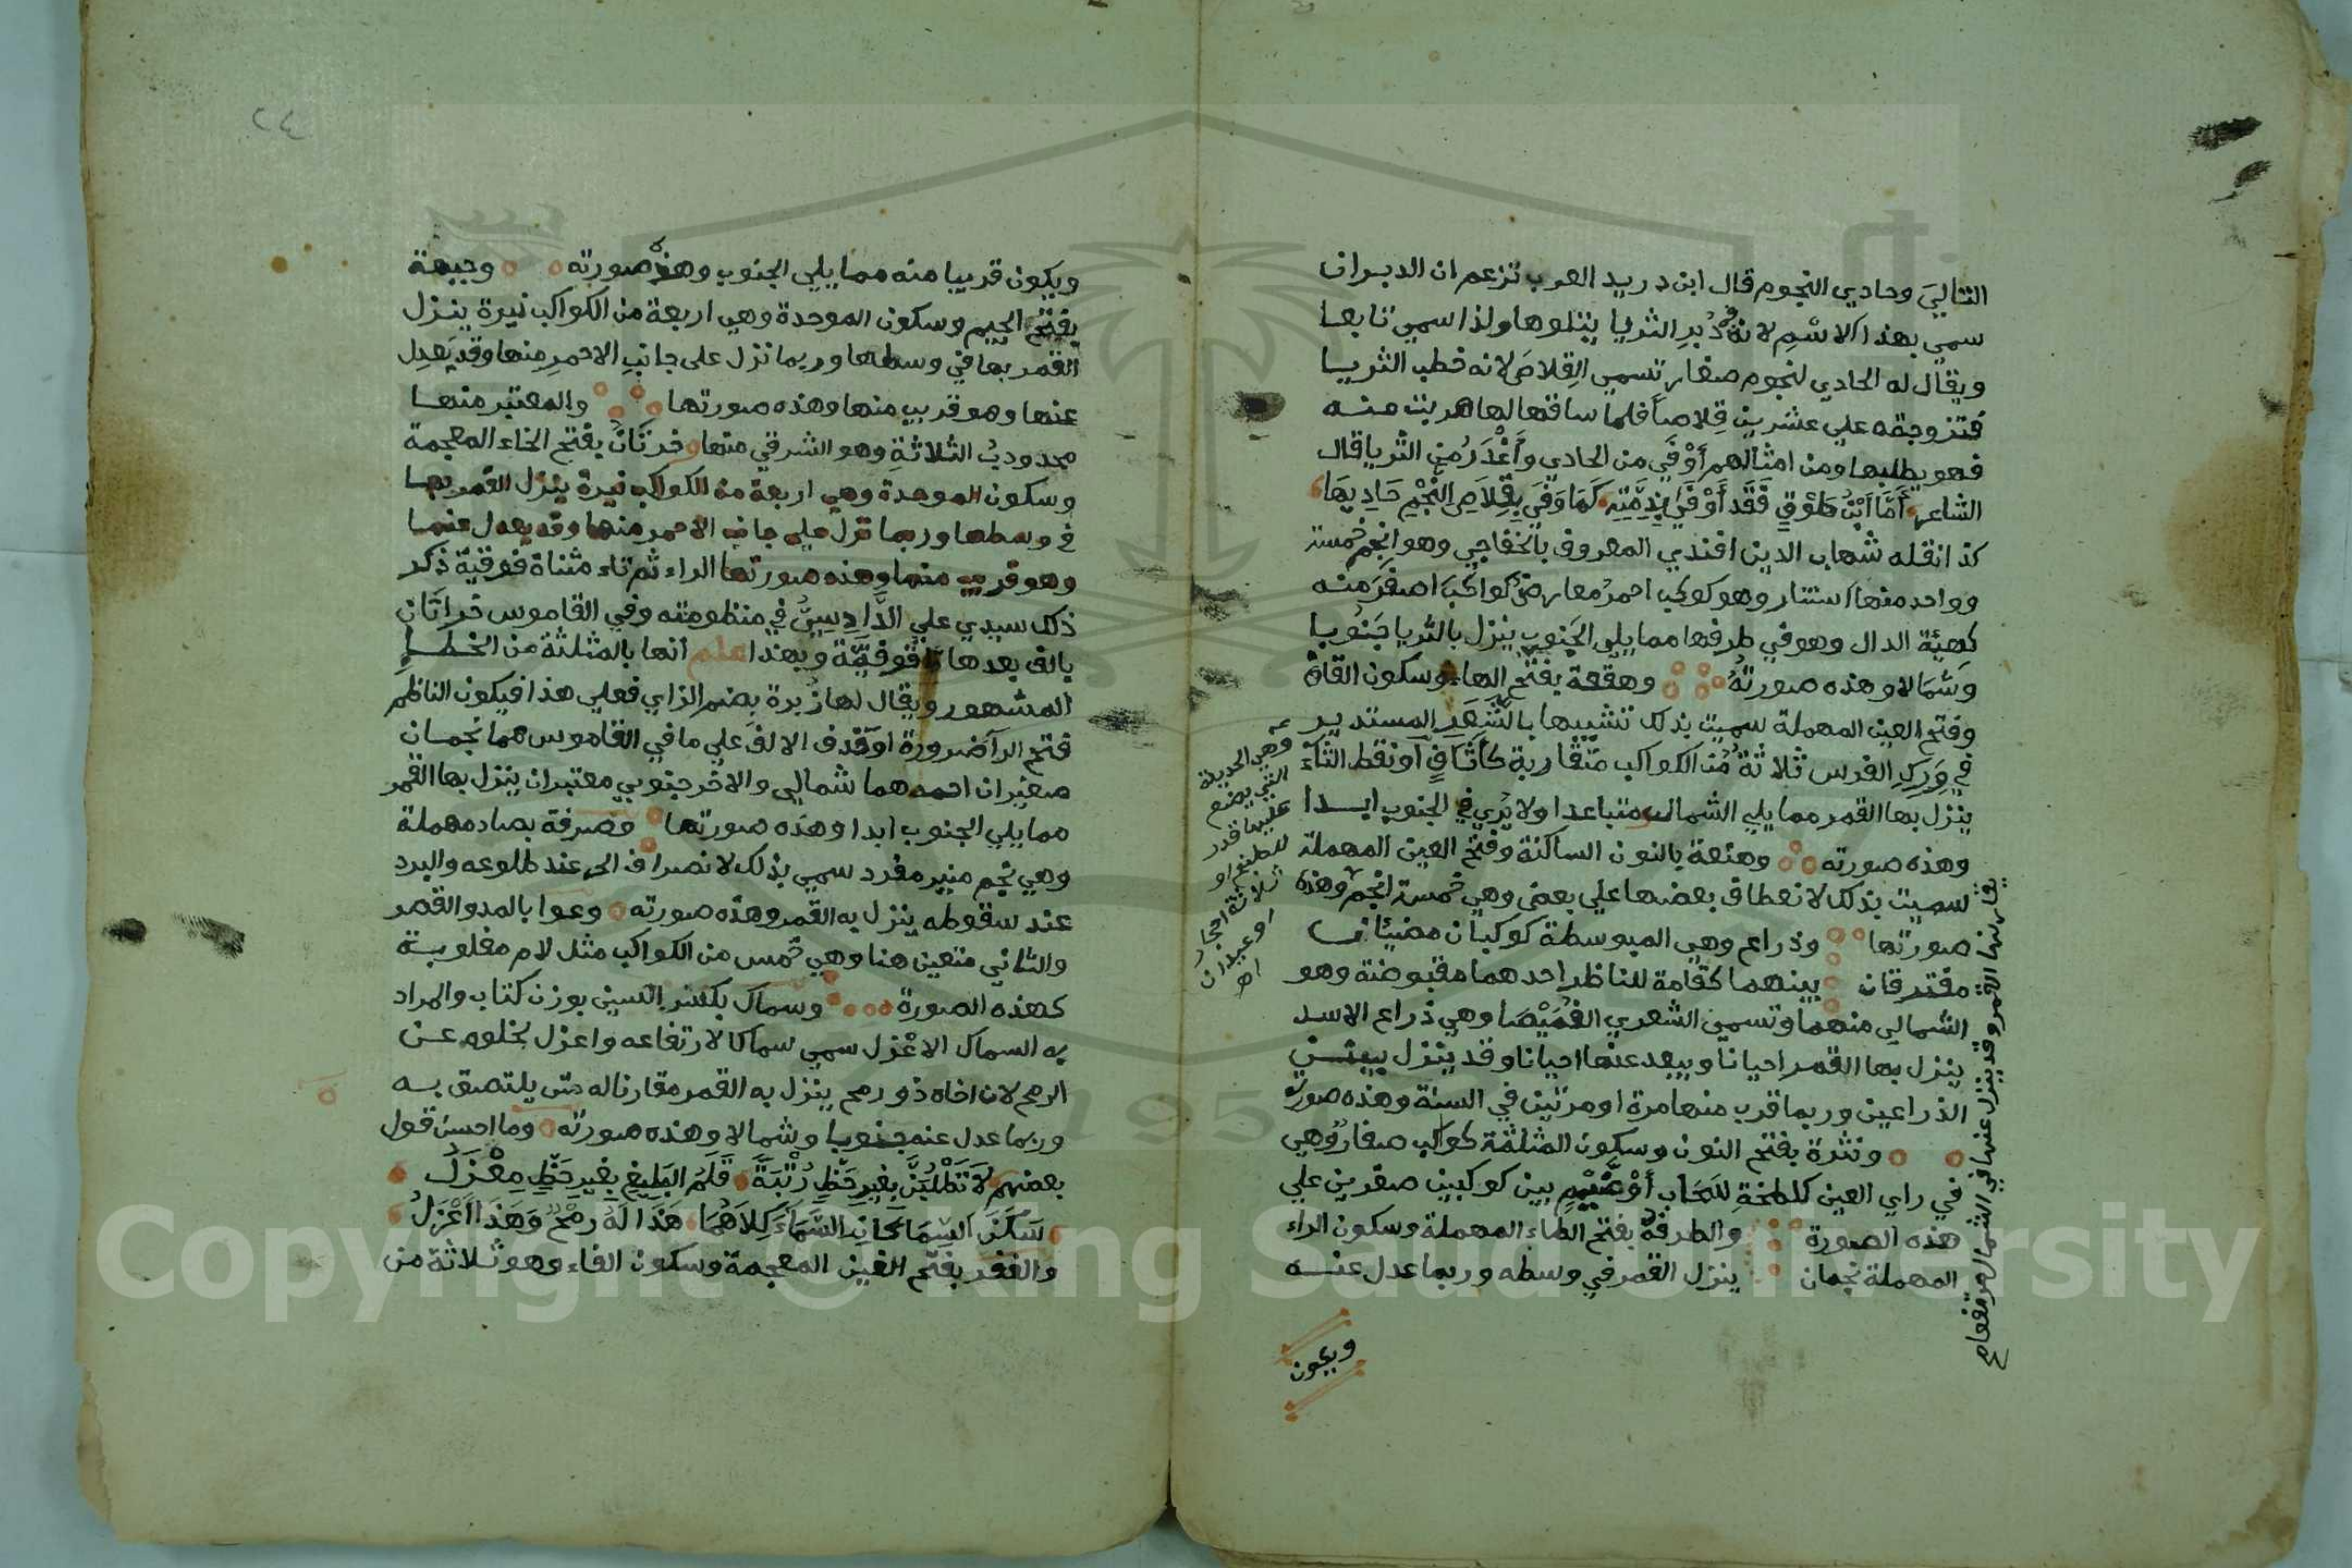 التالي وحادي النجوم قال ابن دريد العرب تزعم ان الدبران
سمي بهذا الاسْمِ لانه في دُبرِ الثريا يتلوها ولذا سمي تابعا
ويقال له الحادي لنجوم صغار تسمى القِلاصَ لانه خطب الثريا
فتزوجته علي عشرين قِلاصاً فلما ساقها لها هربت منه
فهو يطلبها ومن امثالهم أَوْفَي من الحادي وأَغْدَرُ من الثريا قال
الشاعر أَمَّا ابْنُ طَوْقٍ فَقَد أَوْفَي بِذِمَّتِهِ كَمَا وَفَي بِقِلَاصِ النَّجْمِ حَادِيهَا
كذا نقله شهاب الدين افندي المعروف بالخفاجي وهو انجم خمسة
وواحد منها استنار وهو كوكب احمر معارض كواكب اصغر منه
كهيئة الدال وهو في طرفها مما يلي الجنوب ينزل بالثريا جنوبا
وشمالا وهذه صورته وهقعة بفتح الهاء وسكون القاف
وفتح العين المهملة سميت بذلك تشبيها بالشعر المستدير
في وَرِكِ الفرس ثلاثة من الكواكب متقاربة كأثافٍ أو نقط الثاء
ينزل بها القمر مما يلي الشمال متباعدا ولا يُري في الجنوب ابدا
وهذه صورته وهنعة بالنون الساكنة وفتح العين المهملة
سميت بذلك لانعطاف بعضها علي بعض وهي خمسة انجم وهذه
صورتها وذراع وهي المبسوطة كوكبان مضيئان
مفترقان بينهما كقامة للناظر احدهما مقبوضة وهو
الشمالي منهما وتسمى الشعري الغميصا وهي ذراع الاسد
ينزل بها القمر احيانا ويبعد عنها احيانا وقد ينزل ببيتين
الذراعين وربما قرب منها مرة او مرتين في السنة وهذه صورته
ونثرة بفتح النون وسكون المثلثة كواكب صغار وهي
في راي العين كلطخة لسحاب أو غيم بين كوكبين صغرين علي
هذه الصورة والطرفة بفتح الطاء المهملة وسكون الراء
المهملة نجمان ينزل القمر في وسطه وربما عدل عنه
ويكون
وهي الحديدة
التي يضع
عليها قدر
للطبخ او
ثلاثة احجار
او عيدان
اه
يقارنها القمر وقد ينزل عنها في الشمال
٢٤
ويكون قريبا منه مما يلي الجنوب وهذه صورته وجبهة
بفتح الجيم وسكون الموحدة وهي اربعة من الكواكب نيرة ينزل
القمر بها في وسطها وربما نزل على جانب الاحمرِ منها وقد يَعدِل
عنها وهو قريب منها وهذه صورتها والمعتبر منها
محدودبُ الثلاثةِ وهو الشرقي منها وخرتان بفتح الخاء المعجمة
وسكون الموحدة وهي اربعة من الكواكب نيرة ينزل القمر بها
في وسطها وربما نزل على جانب الاحمر منها وقد يعدل عنها
وهو قريب منها وهذه صورتها الراء ثم تاء مثناة فوقية ذكر
ذلك سيدي علي الدَّادِسِيُّ في منظومته وفي القاموس خراتان
بالف بعدها تا فوقيَّة وبهذا علم أنها بالمثلثة من الخطا
المشهور ويقال لها زُبرة بضم الزاي فعلي هذا فيكون الناظم
فتح الرا ضرورة او حذف الالف علي ما في القاموس هما نجمان
صغيران احدهما شمالي والاخر جنوبي معتبران ينزل بها القمر
مما يلي الجنوب ابدا وهذه صورتها وصرفة بصاد مهملة
وهي نجم منير مفرد سمي بذلك لانصراف الحر عند طلوعه والبرد
عند سقوطه ينزل به القمر وهذه صورته وعوا بالمد والقصر
والثاني متعين هنا وهي خمس من الكواكب مثل لام مقلوبة
كهذه الصورة وسماك بكسر السين بوزن كتاب والمراد
به السماك الاعْزل سمي سماكا لارتفاعه واعزل لخلوه عن
الرمح لان اخاه ذو رمح ينزل به القمر مقارنا له حتى يلتصق به
وربما عدل عنه جنوبا وشمالا وهذه صورته وما احسن قول
بعضهم لَا تَطْلُبَنَّ بِغَيرِ حَظٍّ رُتْبَةً قَلَمُ البَلِيغِ بِغَيرِ حَظٍّ مِغْزَلُ
سَكَنَ السِّمَا كَانِ السَّمَاءَ كِلَاهُمَا هَذَا لَهُ رُمْحٌ وَهَذَا أَعْزَلُ
والغفر بفتح الغين المعجمة وسكون الفاء وهو ثلاثة من
Copyright © King Saud University